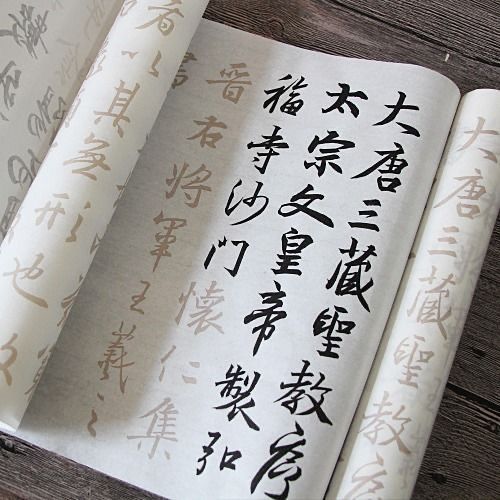 大唐三藏聖教序
大唐三藏聖教序
太宗文皇帝製弘
福寺沙門懷仁集
晉右將軍王羲之
者以其無形也故